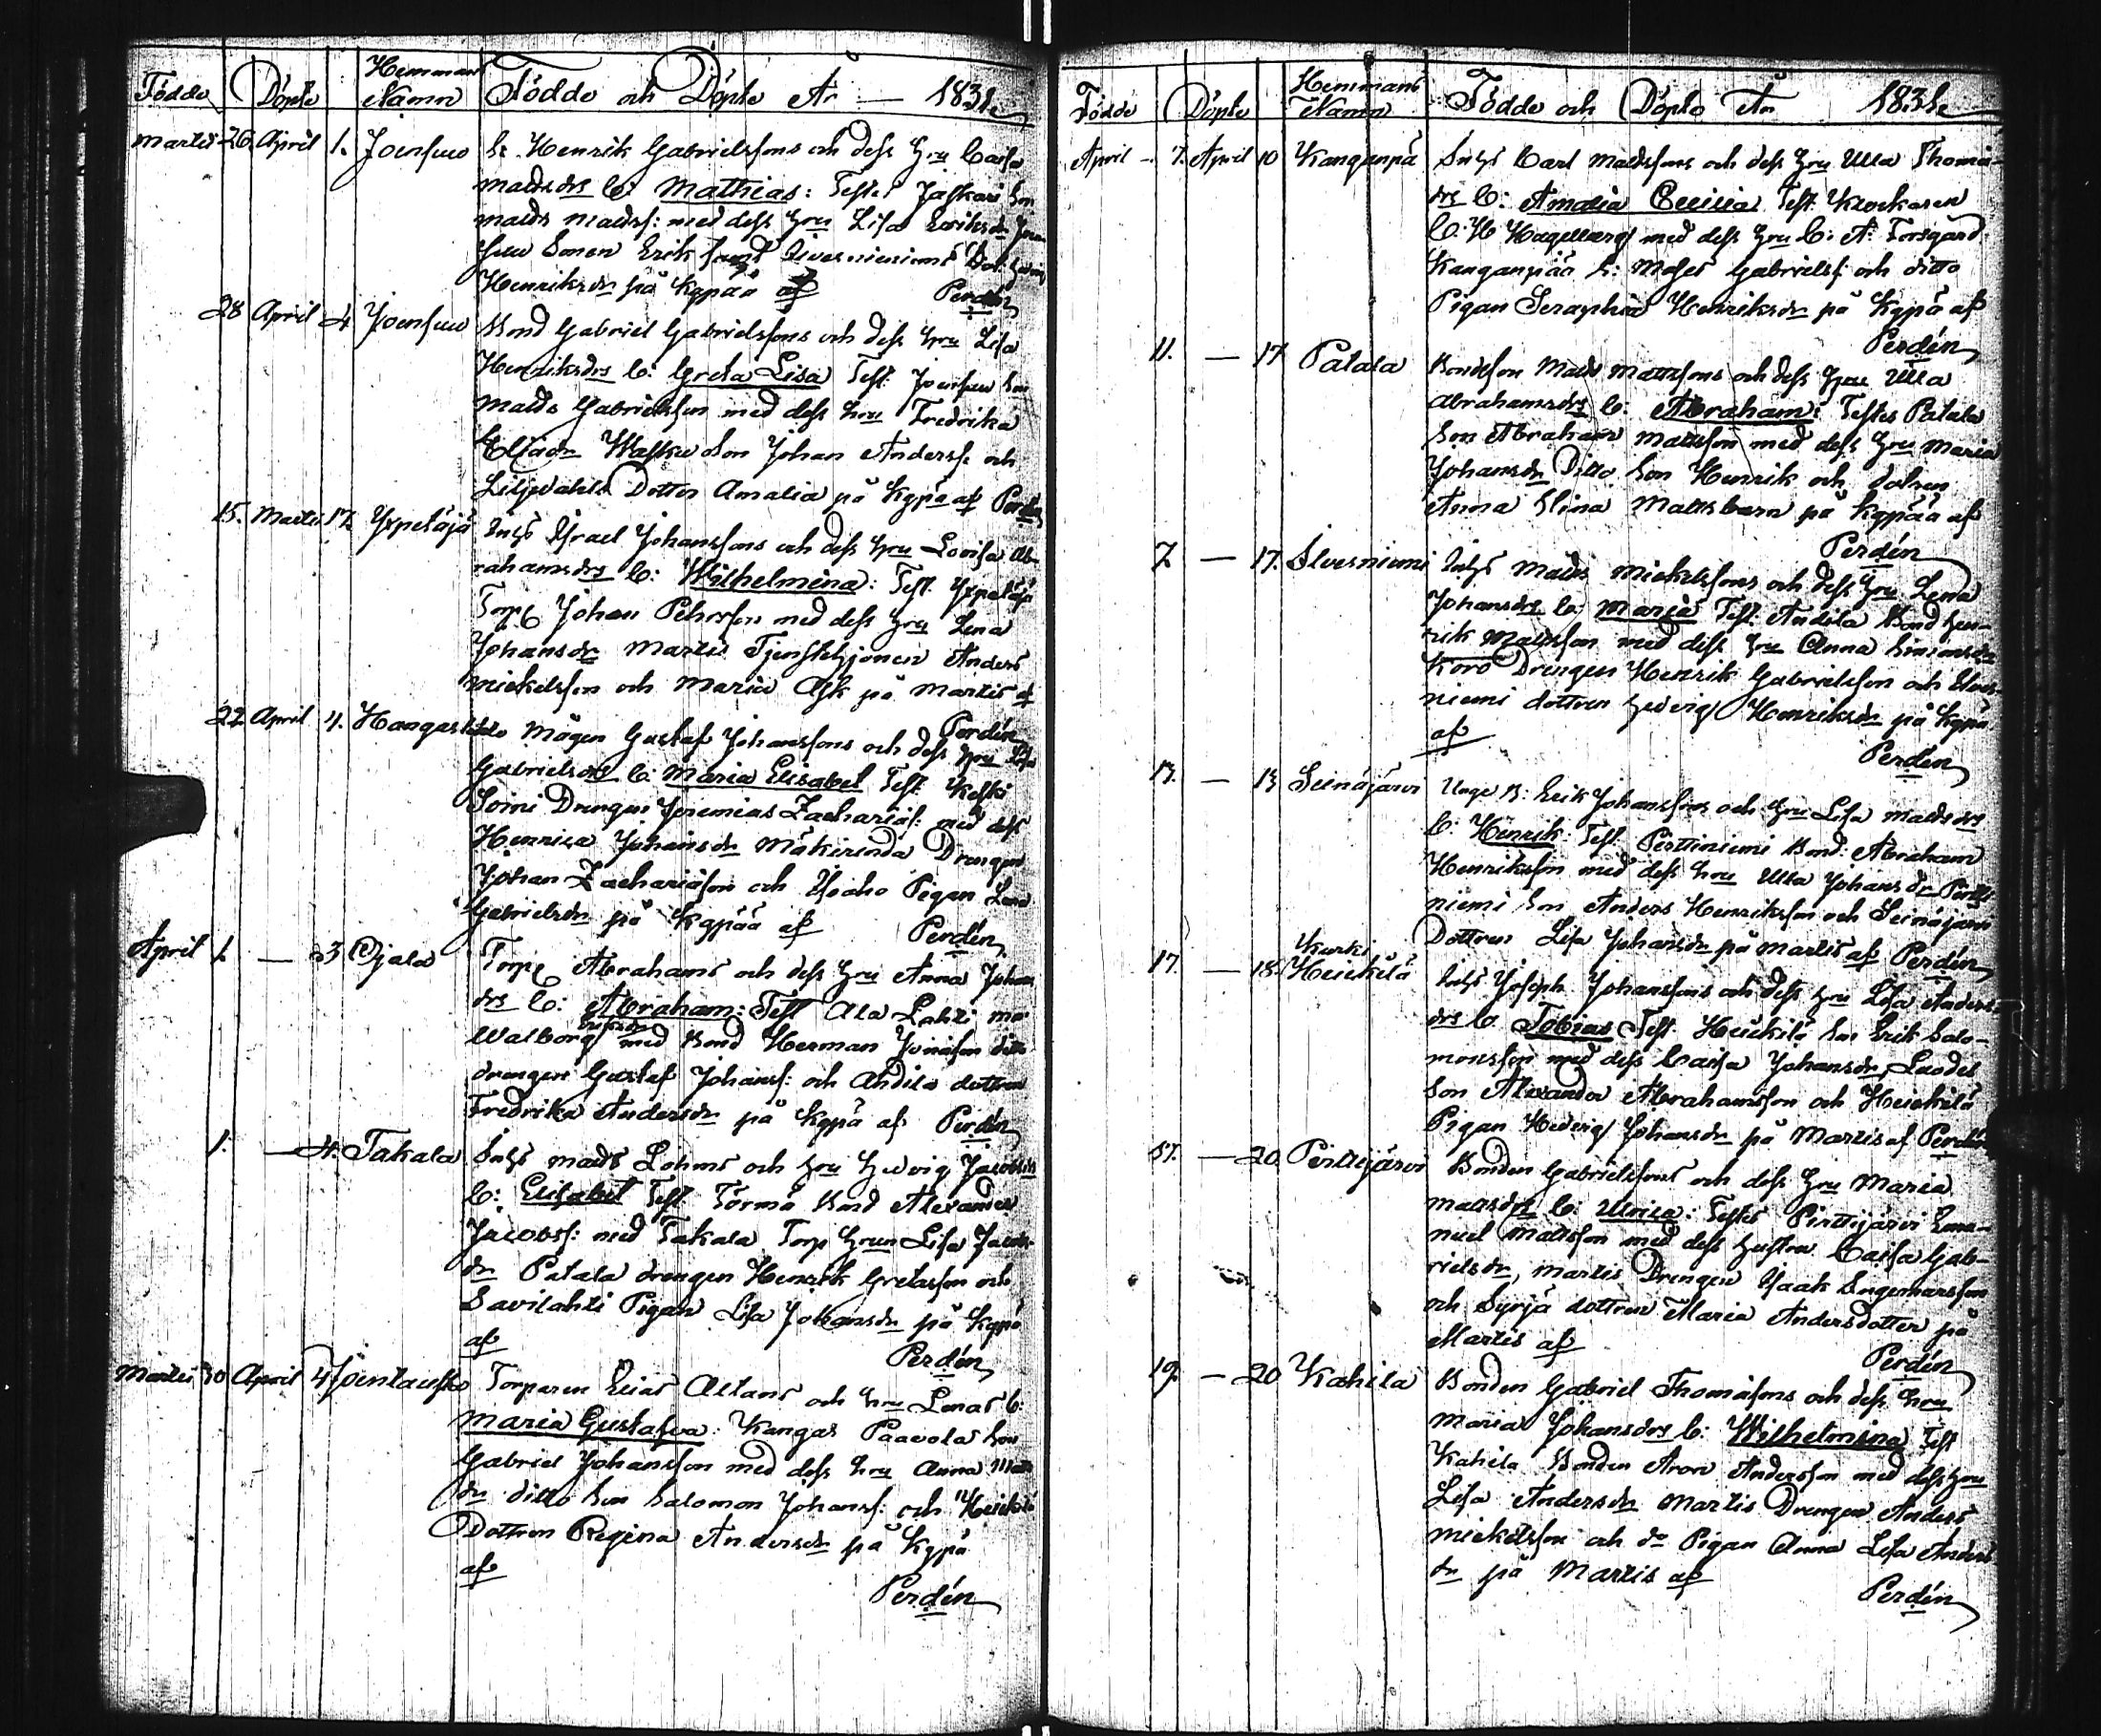 Födde Döpte Hemmans Namn Födde och Döpte År 1831
Martii 26 April 1. Joensuu Henrik Gabrielssons och dess hru Caisa
Mattsdrs b: Mathias: Testes Jaskari Son
Matts Mattss: med dess hru Lisa Eriksdr
Sonen Erik
Henriksdr på Kgpää af Perdén
28 April 4 Joensuu Bond Gabriel Gabrielssons och dess hru Lisa
Henriksdrs b: Greta Lisa Test. Joensuu Son
Matts Gabrielsson med dess hru Fredrika
Eliædr Wasku Son Johan Anderss: och
Liljedahls Dotter Amalia på Kgpä af Perdén
15. Martii 17. Ypeläjä Inhs Israel Johanssons och dess hru Lovisa Ab-
rahamsdrs b: Wilhelmina: Test. Ypeläjä
Torp Johan Pehrsson med dess hru Lena
Johansdr Martis Tjenstehjonen Anders
Mickelsson och Maria på Martis af
Perdén
22 April 4. Mågen Gustaf Johanssons och dess hru
Gabrielsdrs b: Maria Elisabet Test. Keski
Soini Drengen Jeremias Zachariæs: med dess
Henrica Johansdr Mäkirinda Drengen
Johan Zachariæson och Pigan Lena
Gabrielsdr på Kgpää af Perdén
April 1 — 3 Ojala Torp Abrahams och dess hru Anna Johans
drs b: Abraham: Test Ala Lahti
Walborg Eriksdr med Bond Herman Jonæson ditto
drengen Gustaf Johanss: och Andila dottren
Fredrika Andersdr på Kgpä af Perdén
1. — 4. Takala Inhs Matts Lohms och hru Hedvig Jacobsdrs
b: Elisabet Test Törmä Bond Alexander
Jacobss: med Takala Torp hrun Lisa Jacobs-
dr Patala drengen Henrik Gretasson och
Savilahti Pigan Lisa Johansdr på Kgpä
af Perdén
Martii 30 April 4 Torparen Elias Altans och hru Lenas b:
Maria Gustafva: Kangas Paavola Son
Gabriel Johansson med dess hru Anna Matts
dr ditto Son Salomon Johanss: och Heickilä
Dottren Regina Andersdr på Kgpä
af
Perdén
Födde Döpte Hemmans Namn Födde och Döpte År 1831
April 7. April 10 Kanganpä Inhs Carl Mattssons och dess hru Ulla Thomæ
drs b: Amalia Cecilia Test. Klockaren
C. H Hagelberg med dess hru C: A: Forsgård
Kanganpää S: Moses Gabrielss: och ditto
Pigan Seraphia Henriksdr på Kgpä af
Perdén
11. — 17 Patala Bondeson Matts Mattssons och dess hru Ulla
Abrahamsdrs b: Abraham: Testes Patala
Son Abraham Mattsson med dess hru Maria
Johansdr Ditto Son Henrik och dotren
Anna Stina Mattsbarn på Kgpää af
Perdén
7 — 17. Ilvesniemi Inhs Matts Mickelssons och dess hru Lena
Johansdrs b: Maria Test. Andila Bond Hen-
rik Mattsson med dess hru Anna Simonsdr
Koro Drengen Henrik Gabrielsson och Ilves-
niemi dottren Hedvig Henriksdr på Kgpä
af
Perdén
13. — 13 Seinäjärvi Unge B: Erik Johanssons och hru Lisa Mattsdrs
b: Henrik: Test. Perttiniemi Bond: Abraham
Henriksson med dess hru Ulla Johansdr Pertti-
niemi Son Anders Henriksson och Seinäjärvi
Dottren Lisa Johansdr på Martis af Perdén
17. — 18. Kurki Heickilä Inhs Joseph Johanssons och dess hru Lisa Anders-
drs b. Tobias Test. Heickilä Son Erik Salo-
monsson med dess Caisa Johansdr, Laodes
Son Alexander Abrahamsson och Heickilä
Pigan Hedvig Johansdr på Martis af Perdén
17. — 20 Pirttijärvi Bonden Gabrielssons och dess hru Maria
Mattsdrs b: Ulrica: Testes Pirttijärvi Ema-
nuel Mattsson med dess hustru Caisa Gab-
rielsdr, Martis Drengen Isaak Engemarsson
och Syrjä dottren Maria Andersdotter på
Martis af
Perdén
19. — 20 Kahila Bonden Gabriel Thomæsons och dess hru
Maria Johansdrs b: Wilhelmina Test
Kahila Bonden Aron Andersson med dess hru
Lisa Andersdr Martis Drengen Anders
Mickelsson och do Pigan Anna Lisa Anders
dr på Martis af
Perdén